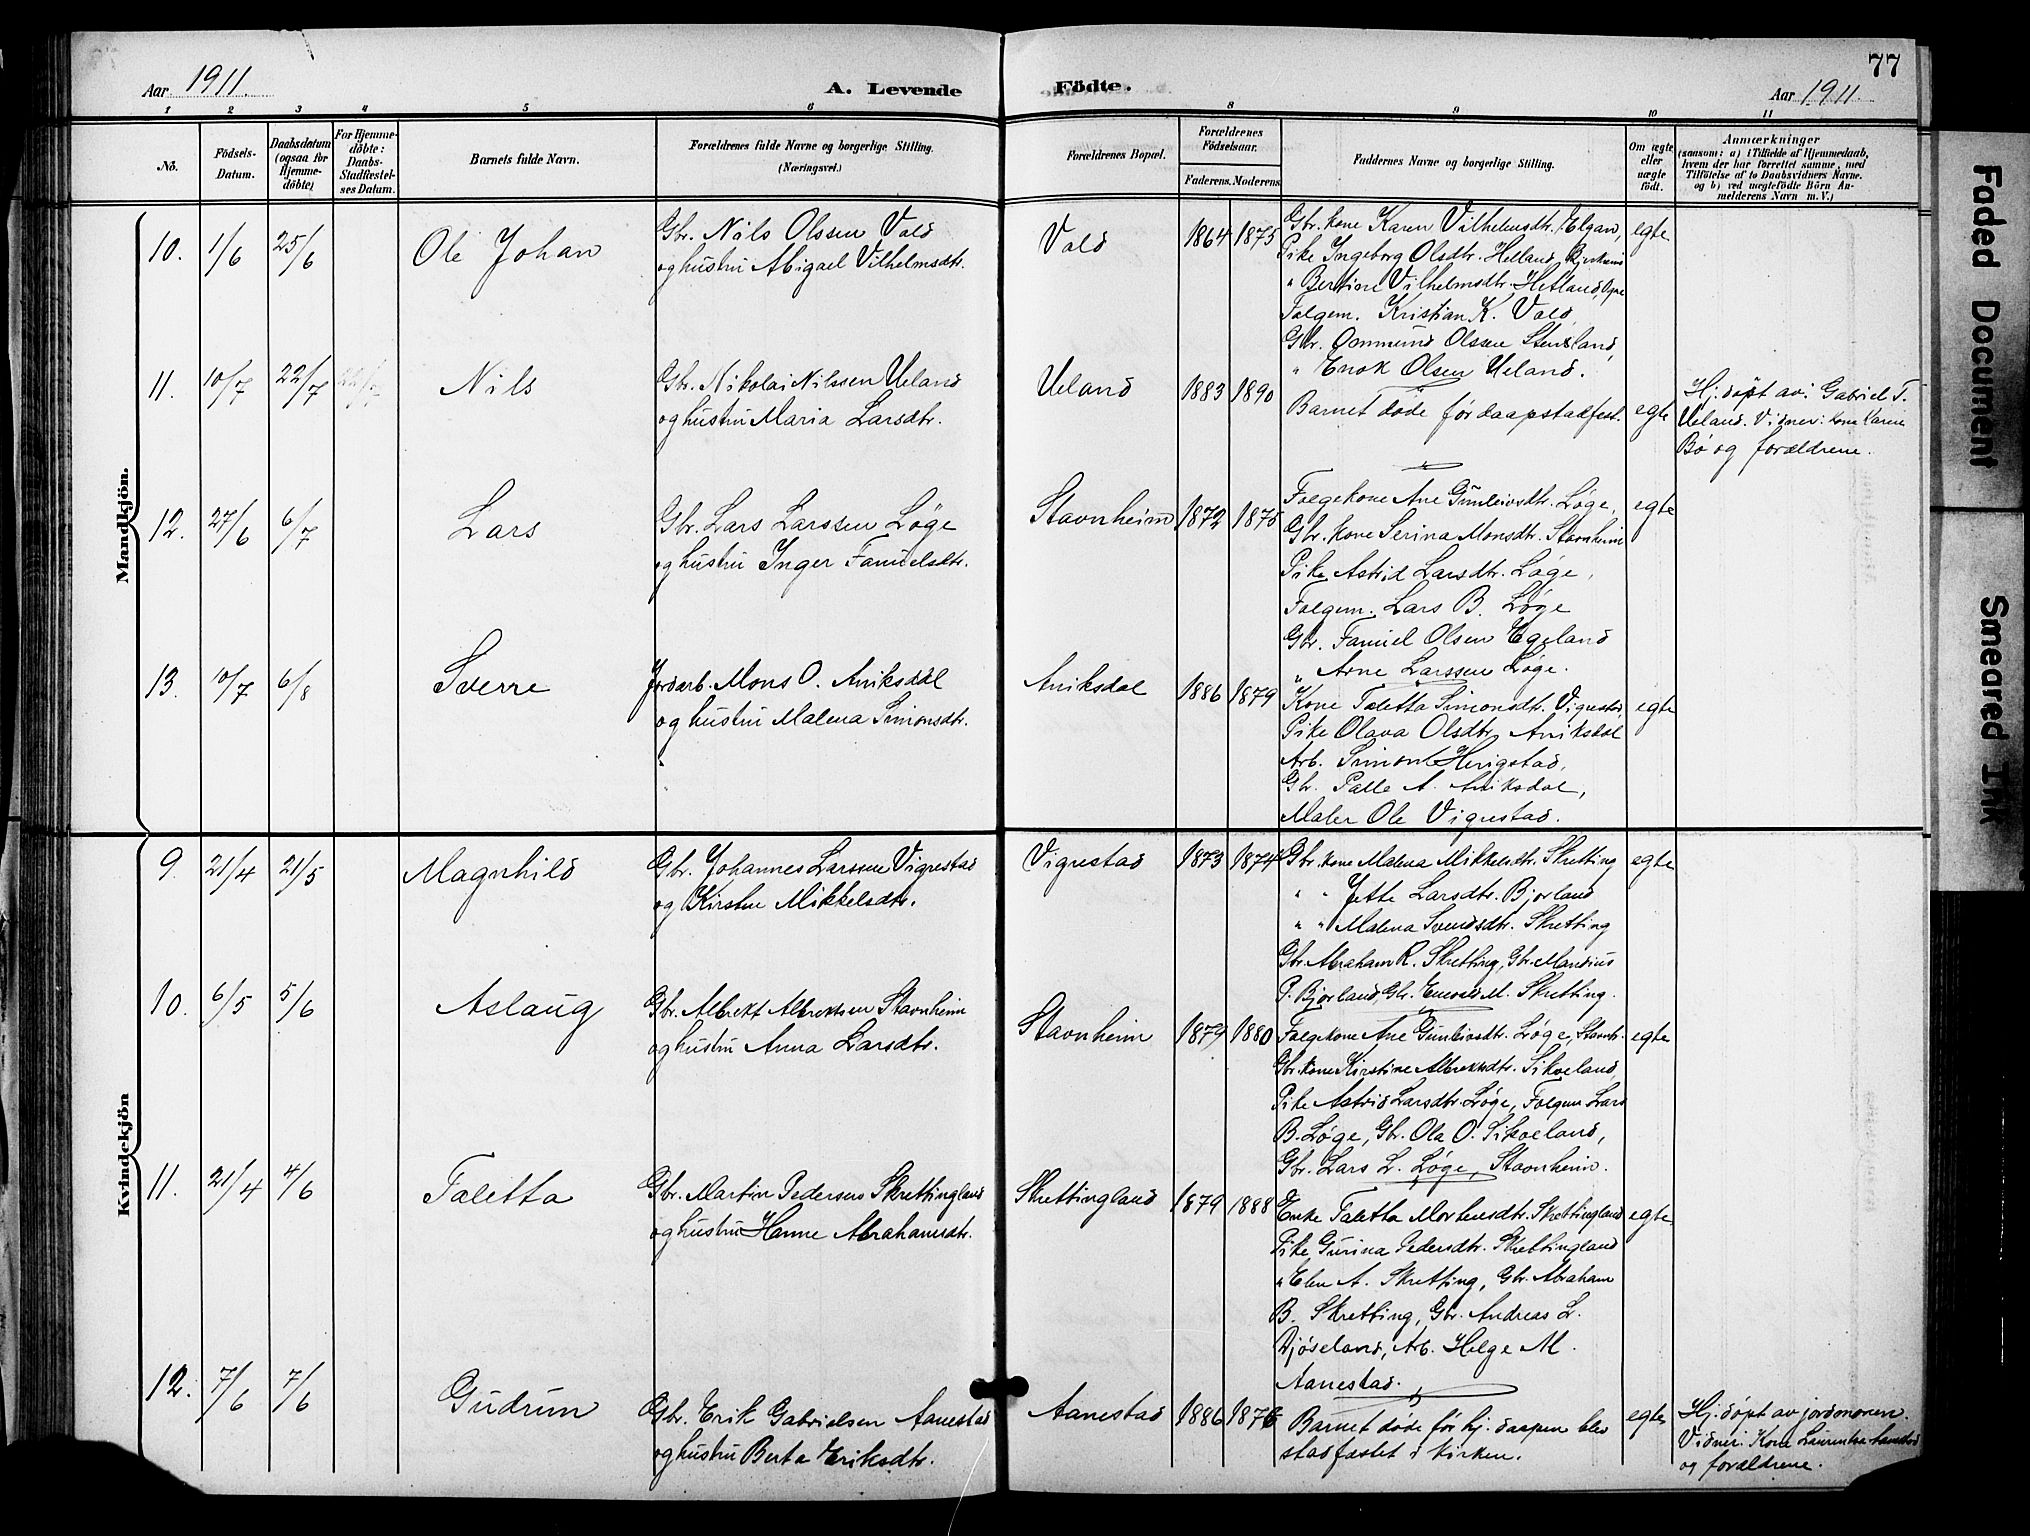 77
Aar 1911.
A. Levende Födte.
Aar 1911.
1 2 3 4 5 6 8 9 10 11
No.
Födsels-
Datum.
Daabsdatum
(ogsaa for
Hjemme-
döbte)
For Hjemme-
döbte:
Daabs-
Stadfæstel-
ses Datum.
Barnets fulde Navn.
Forældrenes fulde Navne og borgerlige Stilling.
(Næringsvei.)
Forældrenes Bopæl.
Forældrenes
Födselsaar.
Faderens. Moderens.
Faddernes Navne og borgerlige Stilling.
Om ægte
eller
uægte
födt.
Anmærkninger
(saasom: a) i Tilfælde af Hjemmedaab,
hvem der har forrettet samme, med
Tilföielse af to Daabsvidners Navne.
og b) ved uægtefödte Börn An-
melderens Navn m. V.)
Mandkjön.
10. 1/6 25/6 Ole Johan
Gbr. Nils Olssen Vold
og hustru Abigael Vilhelmsdtr.
Vold 1864 1875
Gbr. kone Karen Vilhelmsdtr. Elgan,
Pike Ingeborg Olsdtr. Helland,
" Bertine Vilhelmsdtr. Hetland, Ogne
Folgem. Kristian K. Vold,
Gbr. Oommund Olssen Stensland,
" Enok Olsen Ueland.
egte
11. 10/7 22/7 22/7 Nils
Gbr. Nikolai Nilssen Ueland
og hustru Maria Larsdtr.
Ueland 1883 1890
Barnet døde før daapstadfest.
egte
Hj. døpt av: Gabriel T.
Ueland. Vidner: Kone Karen
Bø og forældrene.
12. 27/6 6/7 Lars
Gbr. Lars Larssen Løge
og hustru Inger Famuelsdtr.
Stavnheim 1872 1875
Folgekone Ane Gunleivsdtr. Løge,
Gbr. kone Serina Monsdtr. Stavnheim
Pike Astrid Larsdtr. Løge,
Folgem. Lars B. Løge
Gbr. Famuel Olsen Egeland
" Arne Larssen Løge.
egte
13. 10/7 6/8 Sverre
Jordarb. Mons O. Aniksdal
og hustru Malena Simonsdtr.
Aniksdal 1886 1879
Kone Taletta Simonsdtr. Vigrestad,
Pike Olava Olsdtr. Aniksdal
Arb. Simon Herigstad,
Gbr. Palle A. Aniksdal,
Maler Ole Vigrestad.
egte
Kvindekjön
9. 21/4 21/5 Magnhild
Gbr. Johannes Larssen Vigrestad
og Kirstine Mikkelsdtr.
Vigrestad 1873 1874
Gbr. kone Malena Mikkelsdtr. Skretting
" " Jette Larsdtr. Bjorland
" " Malena Svendsdtr. Skretting
Gbr. Abraham R. Skretting, Gbr. Mandius
P. Bjorland, Gbr. Enevald M. Skretting.
egte
10. 6/5 5/6 Aslaug
Gbr. Albrekt Albrektsen Stavnheim
og hustru Anna Larsdtr.
Stavnheim 1879 1880
Folgekone Ane Gunleivsdtr. Løge, Stavnh.
Gbr. kone Kirstine Albrektsdtr. Sikveland,
Pike Astrid Larsdtr. Løge, Folgem Lars
B. Løge, Gbr. Ola O. Sikveland,
Gbr. Lars L. Løge, Stavnheim.
egte
11. 21/4 4/6 Taletta
Gbr. Martin Pedersen Skrettingland
og hustru Hanne Abrahamsdtr.
Skrettingland 1879 1888
Enke Taletta Mortensdtr. Skrettingland
Pike Gurina Pedersdtr. Skrettingland
" Elen A. Skretting, Gbr. Abraham
B. Skretting, Gbr. Andreas L.
Djøseland, Arb. Helge M.
Aanestad.
egte
12. 7/6 7/6 Gudrun
Gbr. Erik Gabrielsen Aanestad
og hustru Berta Eriksdtr.
Aanestad 1886 1876
Barnet døde før hj. daapen blev
stadfæstet i kirken.
egte
Hj. døpt av jordmoren.
Vidner: Kone Laurentse Aanestad
og forældrene.
Faded Document
Smeared Ink